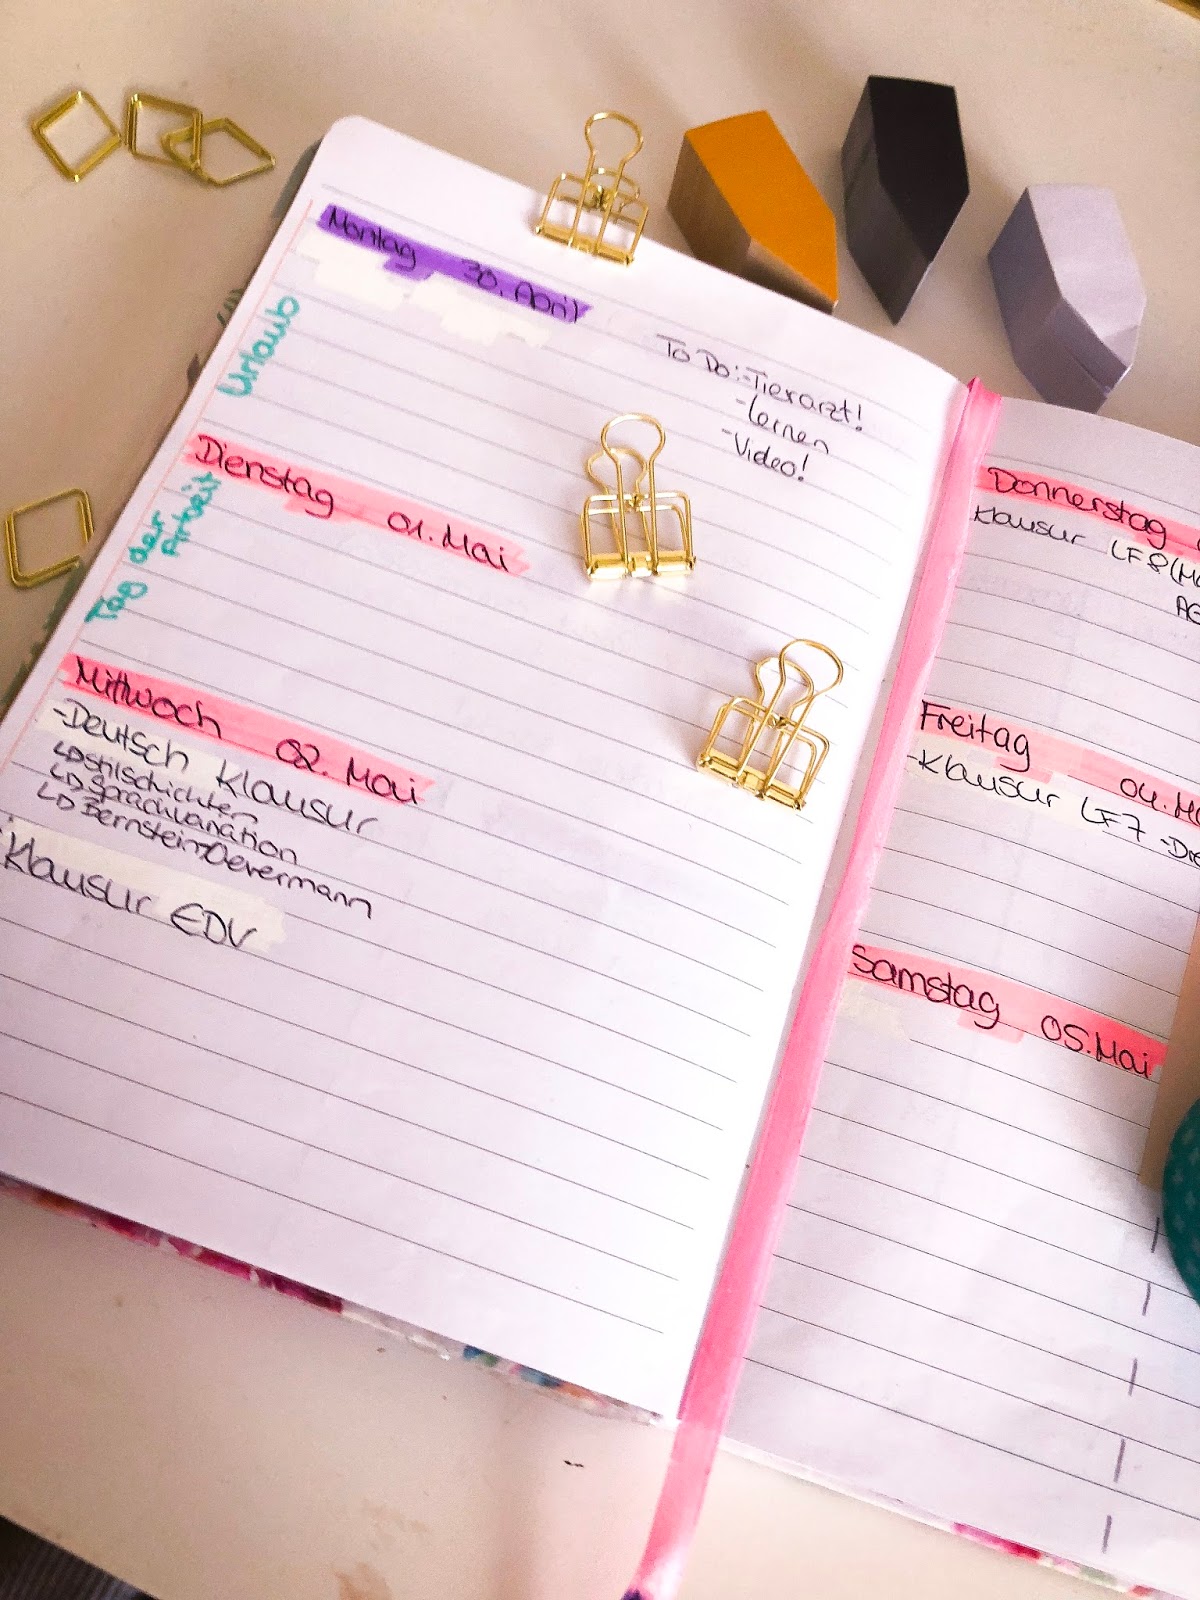 Montag 30. April
Urlaub
To Do: -Tierarzt!
-lernen
-Video!
Dienstag 01. Mai
Tag der
Arbeit
Mittwoch 02. Mai
-Deutsch Klausur
Stilschichten
Bernstein/Oevermann
Klausur EDV
Donnerstag
Klausur LF8
Freitag 04.
-Klausur LF7
Samstag 05. Mai